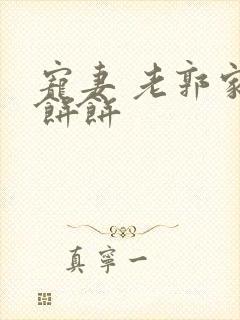 寵妻 老郭家
餅餅
真寧一